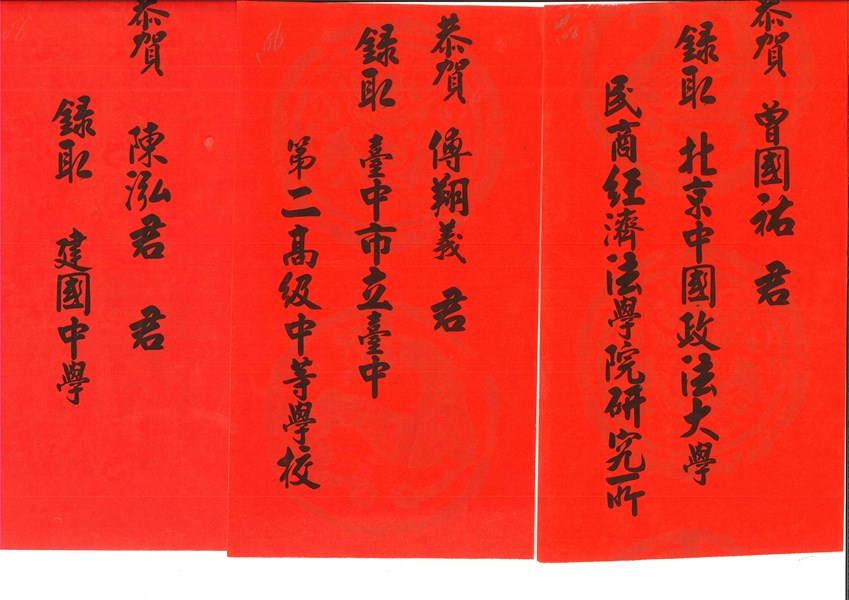 恭賀 曾國祐 君
錄取 北京中國政法大學
民商經濟法學院研究所
恭賀 傅翔義 君
錄取 臺中市立臺中
第二高級中等學校
恭賀 陳泓君 君
錄取 建國中學